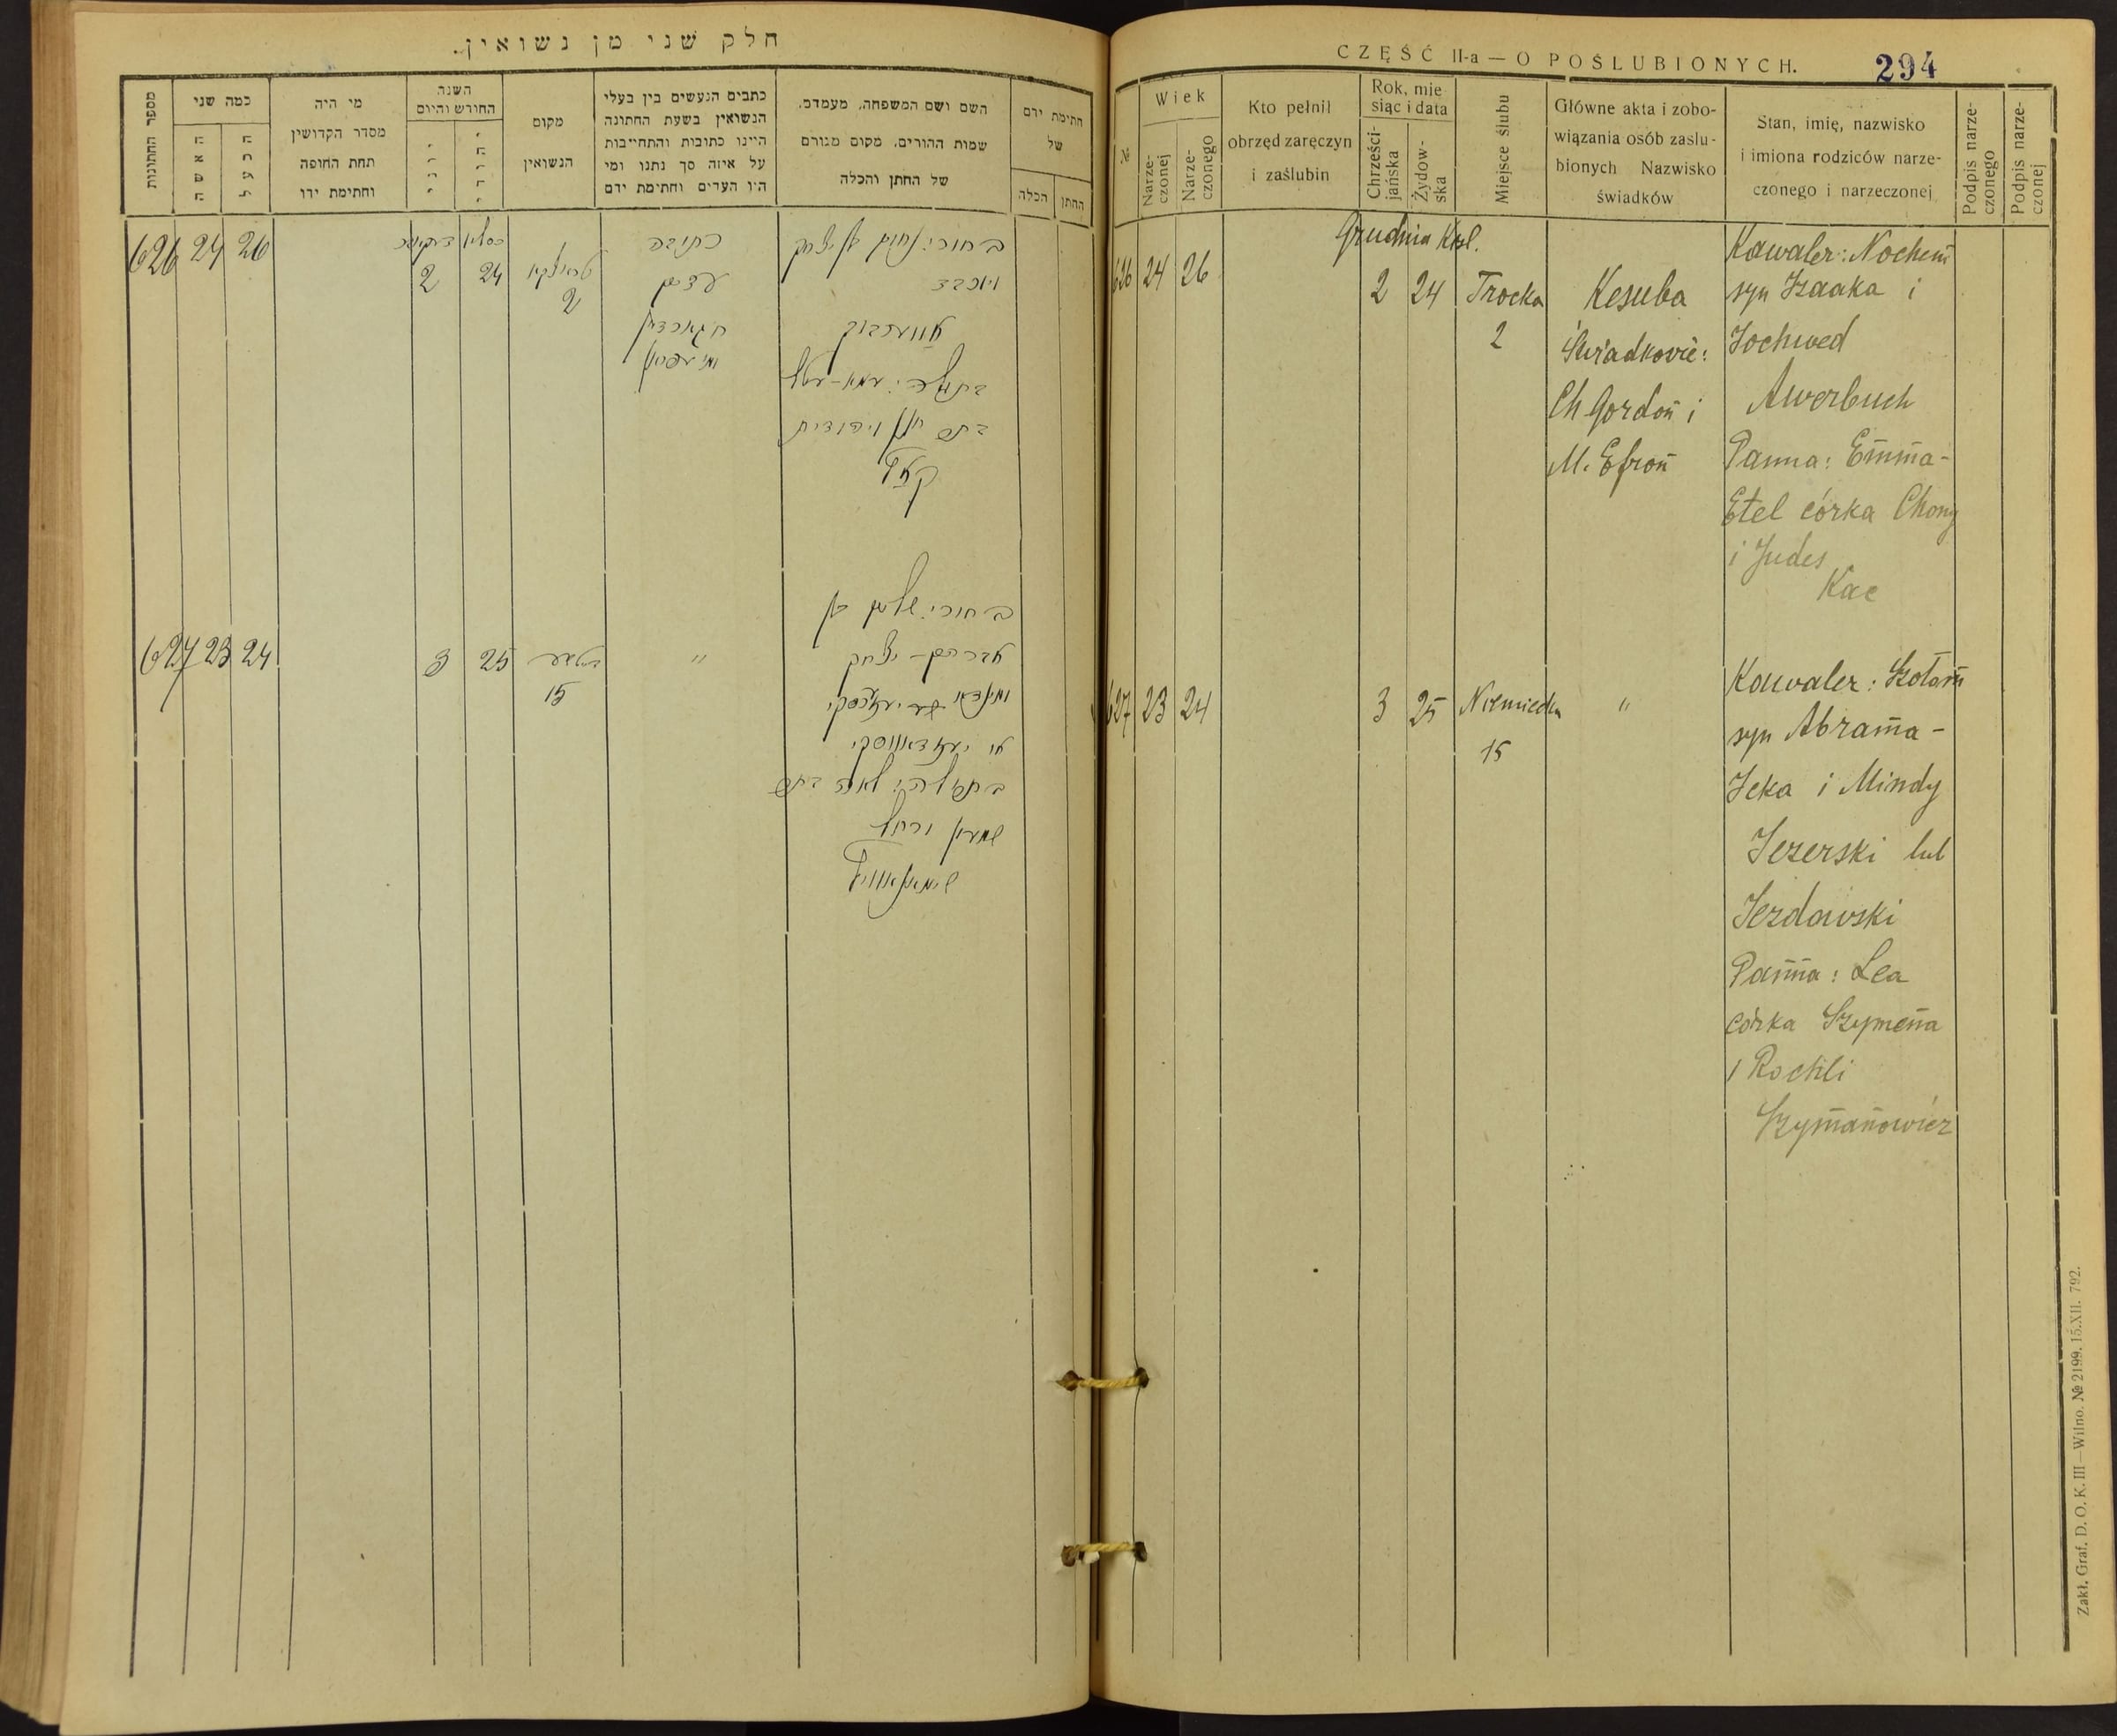 חלק שני מן נשואין.
מספר החתונות
כמה שני
האשה
הבעל
מי היה
מסדר הקדושין
תחת החופה
וחתימת ידו
השנה
החודש והיום
מקום
הנשואין
כתבים הנעשים בין בעלי
הנשואין בשעת החתונה
היינו כתובות והתחייבות
על איזה סך נתנו ומי
היו העדים וחתימת ידם
השם ושם המשפחה, מעמדם,
שמות ההורים, מקום מגורם
של החתן והכלה
חתימת ידם
של
הכלה
החתן
626 24 26
2 24
2
כתובה
עדים
ח. גארדאן
ומ. עפראן
בחור: נחום בן יצחק
ויוכבד
אווערבוך
בתולה: עמא-עטל
בת חנן ויהודית
קאץ
627 23 24
3 25
15
"
בחור: שלום בן
אברהם-יצחק
ומינדא יעזערסקי
או יעזדאווסקי
בתולה: לאה בת
שמעון ורחל
שימאנאוויץ
CZĘŚĆ II-a — O POŚLUBIONYCH.
294
№
Wiek
Narze-
czonej
Narze-
czonego
Kto pełnił
obrzęd zaręczyn
i zaślubin
Rok, mie
siąc i data
Chrześci-
jańska
Żydow-
ska
Miejsce ślubu
Główne akta i zobo-
wiązania osób zaślu-
bionych Nazwisko
świadków
Stan, imię, nazwisko
i imiona rodziców narze-
czonego i narzeczonej
Podpis narze-
czonego
Podpis narze-
czonej
Grudnia Ksl.
626 24 26
2 24
Trocka
2
Kesuba
Świadkowie:
Ch Gordon i
M. Efron
Kawaler: Nochem
syn Izaaka i
Jochwed
Awerbuch
Panna: Emma-
Etel córka Chony
i Judes
Kac
627 23 24
3 25
Niemiecka
15
"
Kawaler: Szołom
syn Abrama-
Icka i Mindy
Jezerski lub
Jezdowski
Panna: Lea
córka Szymena
i Rochli
Szymanowicz
Zakł. Graf. D. O. K. III—Wilno. № 2199. 15.XII. 792.